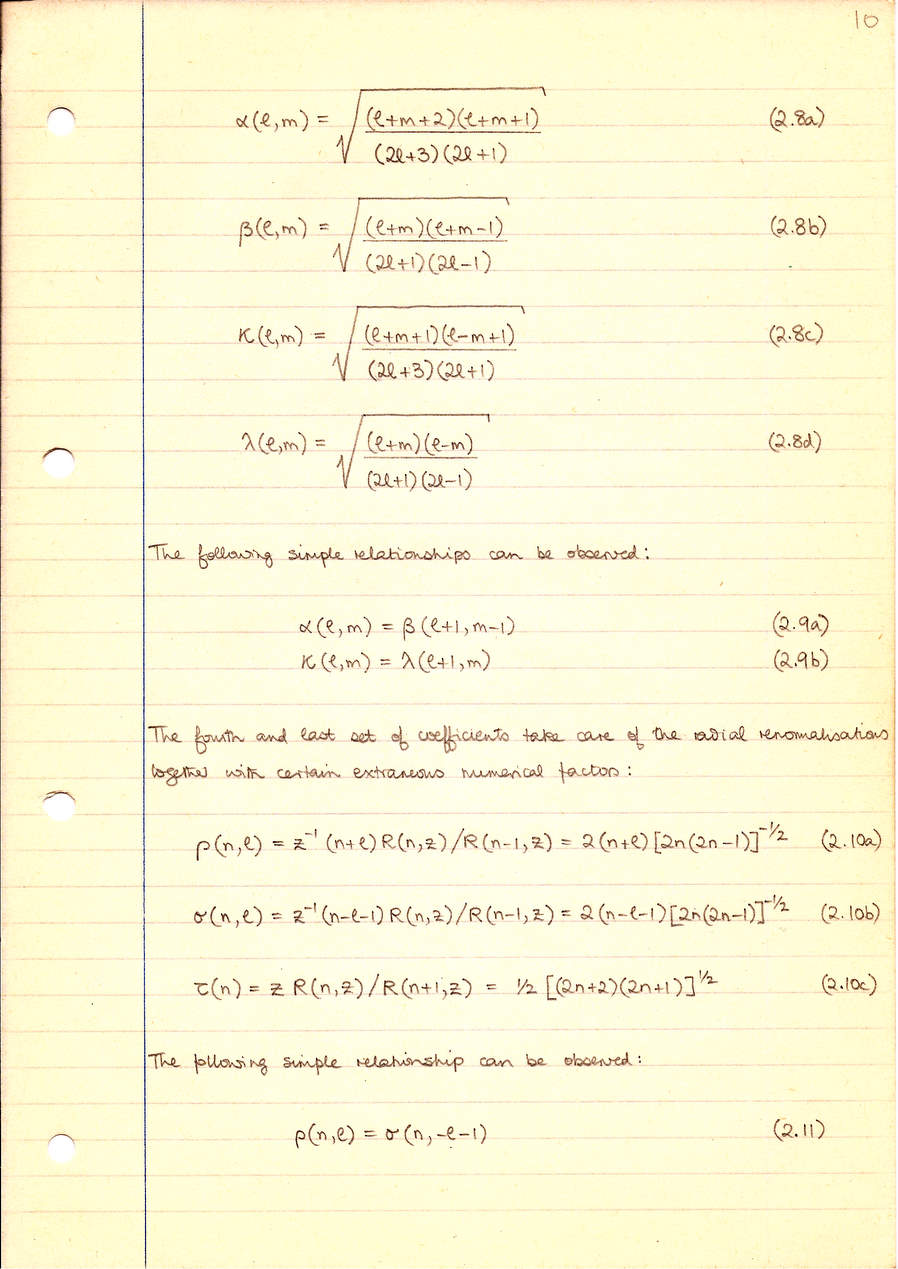 10
α(ℓ,m) = √((ℓ+m+2)(ℓ+m+1) / (2ℓ+3)(2ℓ+1)) (2.8a)
β(ℓ,m) = √((ℓ+m)(ℓ+m−1) / (2ℓ+1)(2ℓ−1)) (2.8b)
κ(ℓ,m) = √((ℓ+m+1)(ℓ−m+1) / (2ℓ+3)(2ℓ+1)) (2.8c)
λ(ℓ,m) = √((ℓ+m)(ℓ−m) / (2ℓ+1)(2ℓ−1)) (2.8d)
The following simple relationships can be observed:
α(ℓ,m) = β(ℓ+1,m−1) (2.9a)
κ(ℓ,m) = λ(ℓ+1,m) (2.9b)
The fourth and last set of coefficients take care of the radial renormalisations
together with certain extraneous numerical factors:
ρ(n,ℓ) = z⁻¹(n+ℓ)R(n,z)/R(n−1,z) = 2(n+ℓ)[2n(2n−1)]^−1/2 (2.10a)
σ(n,ℓ) = z⁻¹(n−ℓ−1)R(n,z)/R(n−1,z) = 2(n−ℓ−1)[2n(2n−1)]^−1/2 (2.10b)
τ(n) = z R(n,z)/R(n+1,z) = 1/2 [(2n+2)(2n+1)]^1/2 (2.10c)
The following simple relationship can be observed:
ρ(n,ℓ) = σ(n,−ℓ−1) (2.11)